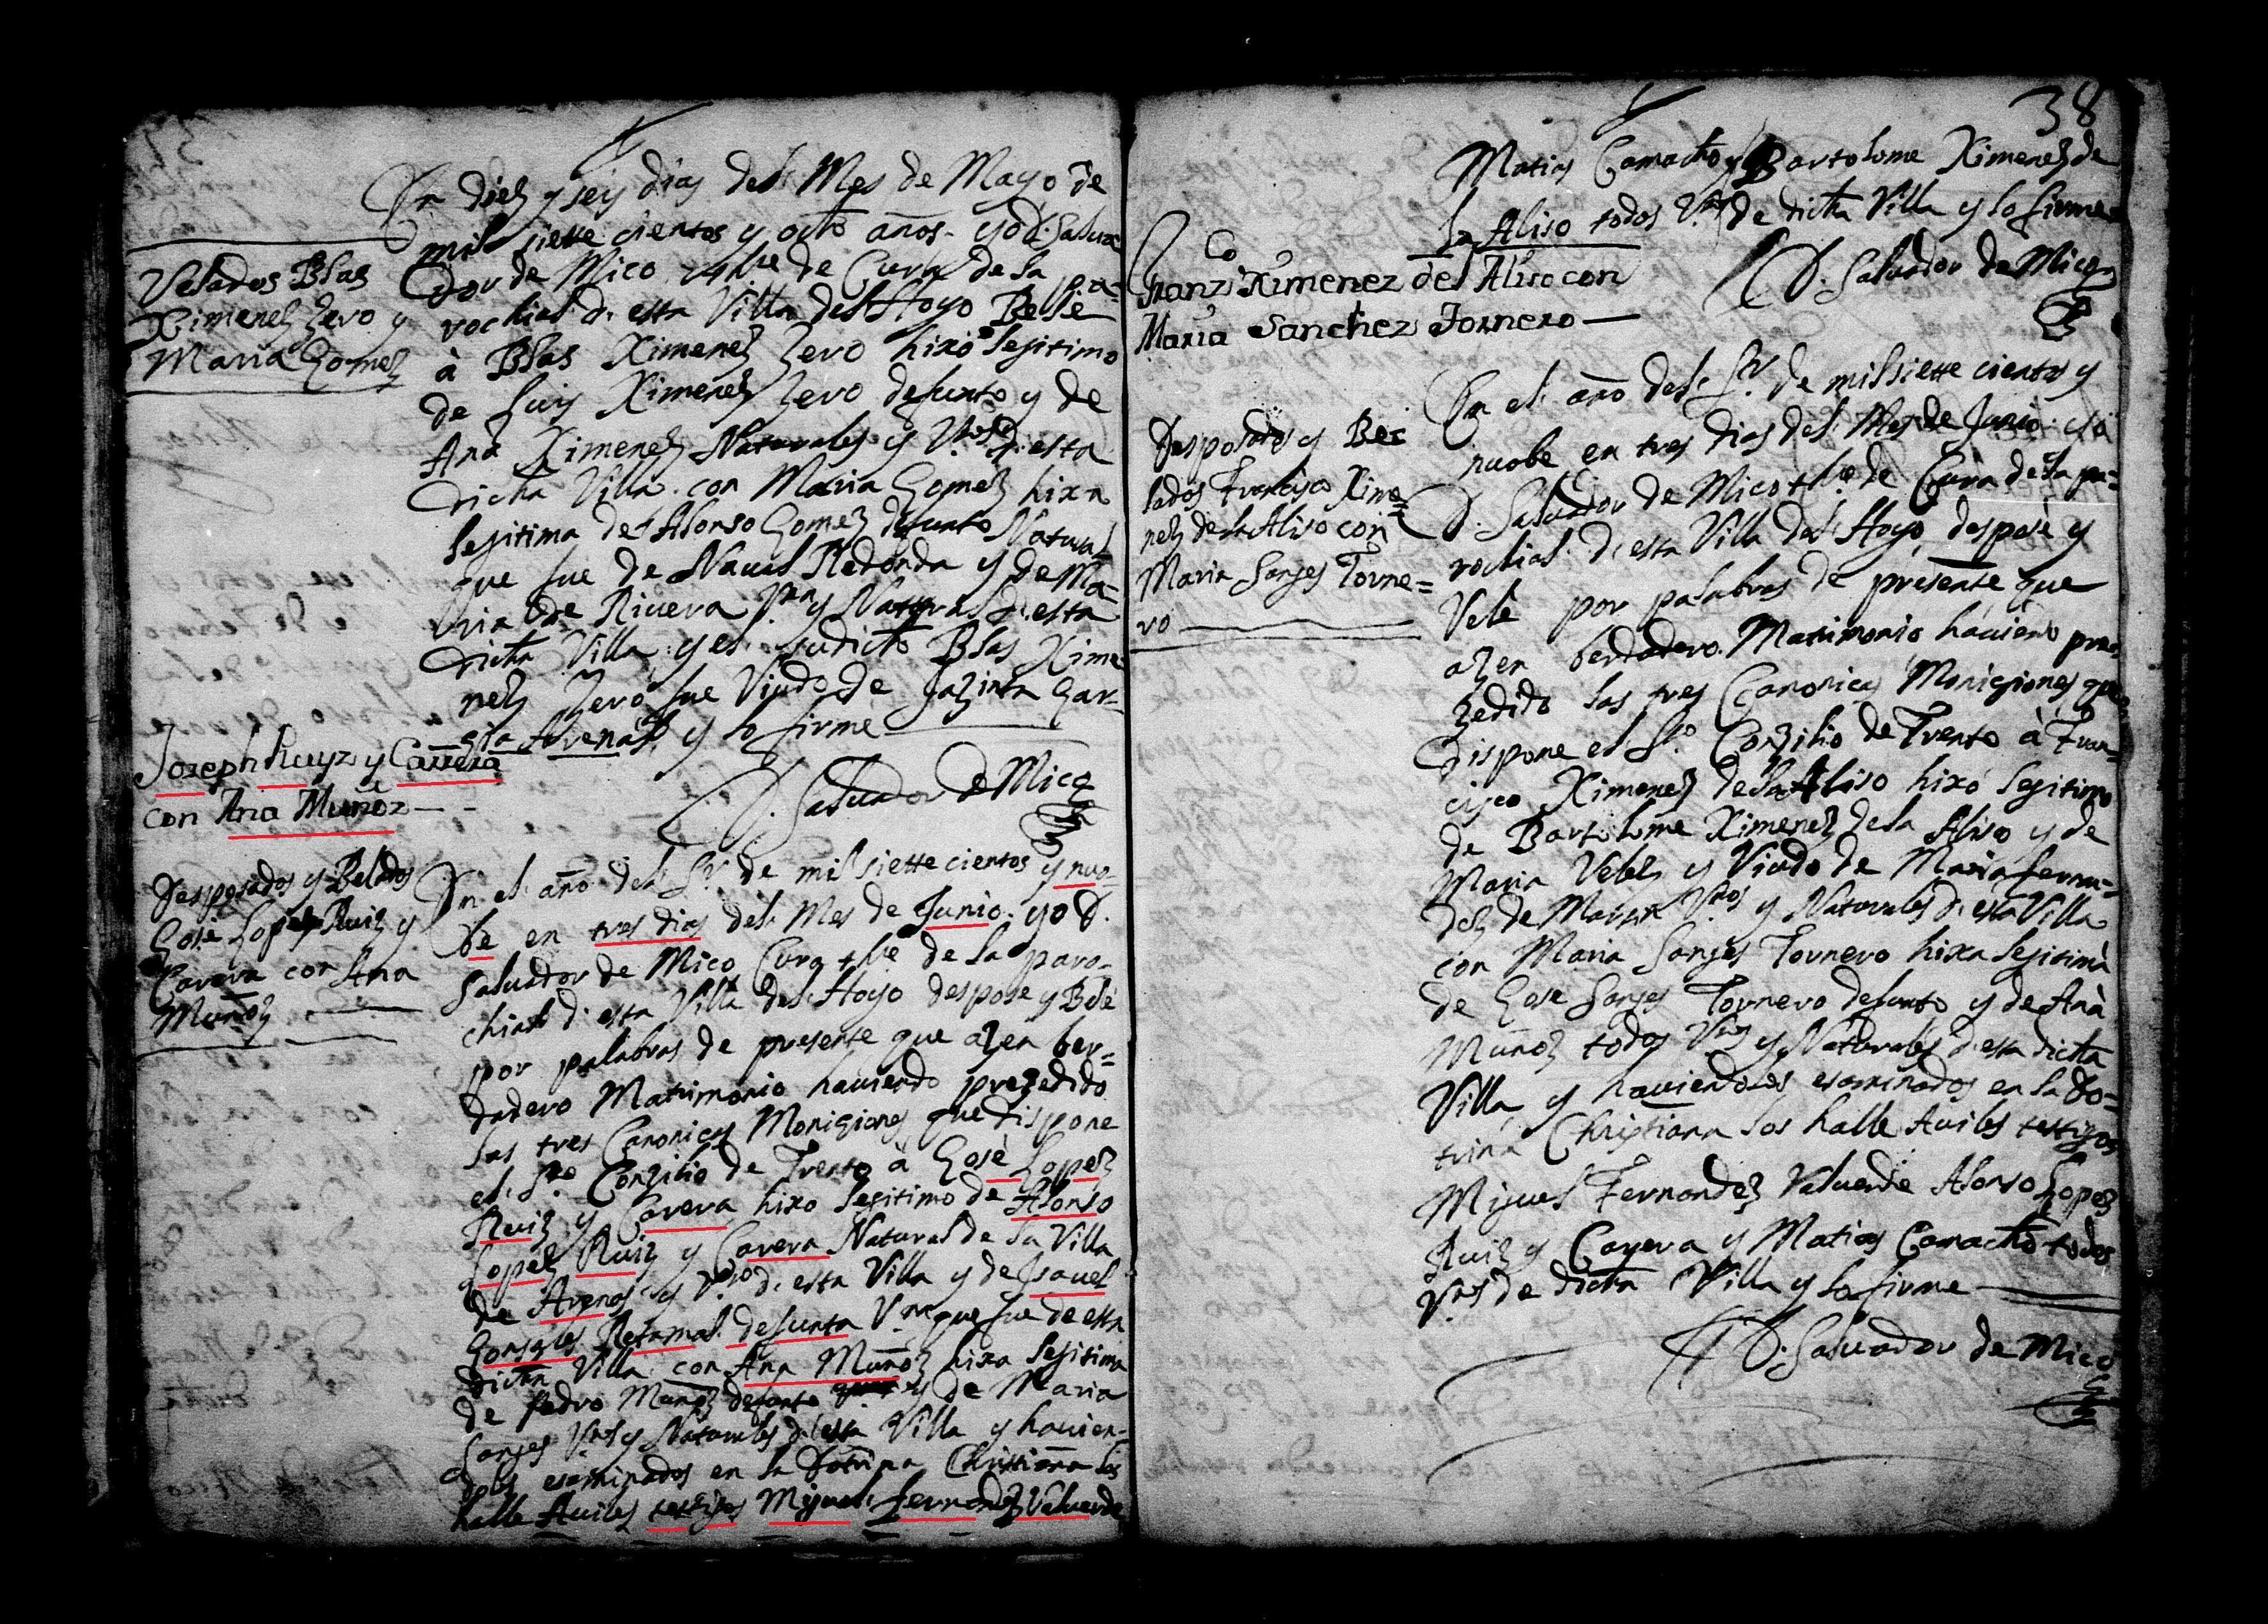 Velados Blas
Ximenez Zero y
Maria Gomez
En diez y seis dias del Mes de Mayo de
mil siette cientos y octo años yo D. Salva
dor de Mico thte de Cura de la pa-
rochial d. esta Villa del Hoyo Belé
à Blas Ximenez Zero hixo lejitimo
de Luis Ximenez Zero defunto y de
Ana Ximenez Naturales y Vos d. esta
dicha Villa con Maria Gomez hixa
lejitima de Alonso Gomez defunto Natural
que fue de Naval Redonda y de Ma-
ria de Rivera Vna y Natural d. esta
dicha Villa y el sudicto Blas Xime
nez Zero fue Viudo de Jazinta Gar-
zia Arenas y lo firme
D. Salvador de Mico
Joseph Ruyz y Carrera
con Ana Muñoz
Desposados y Belados
Gosé Lopez Ruiz y
Carera con Ana
Muñoz
En el año del Sr. de mil siette cientos y nuo-
be en tres dias del Mes de Junio yo D.
Salvador de Mico Cura thte de la paro-
chial d. esta Villa del Hoyo despose y Belé
por palabras de presente que azen ber-
dadero Matrimonio haviendo prezedido
las tres Canonicas Moniziones que dispone
el Sto Conzilio de Trento à Gosè Lopez
Ruiz y Carera hixo lejitimo de Alonso
Lopez Ruiz y Carera Natural de la Villa
de Arenas y Vo d. esta Villa y de Isavel
Gonsales Retamal defunta Vna que fue de esta
dicta Villa con Ana Muñoz hixa lejitima
de Pedro Muñoz defunto y de Maria
Sanges Vos y Naturales d. esta Villa y havien-
dolos esaminados en la Dotrina Christiana los
halle Aviles testigos Miguel Fernandez Valverde
38
Matias Camacho y Bartolome Ximenez de
la Aliso todos Vos de dicta Villa y lo firme
D. Salvador de Mico
Franzco Ximenez del Aliso con
Maria Sanchez Tornero
Desposados y Be
lados Francisco Xime-
nez de la Aliso con
Maria Sanges Torne-
ro
En el año del Sr. de mil siette cientos y
nuobe en tres dias del Mes de Junio yo
D. Salvador de Mico thte de Cura de la pa-
rochial d. esta Villa del Hoyo, desposè y
Velè por palabras de presente que
azen berdadero Matrimonio haviendo pre-
zedido las tres Canonicas Moniziones que
dispone el Sto Conzilio de Trento à Fran-
cisco Ximenez de la Aliso hixo lejitimo
de Bartolome Ximenez de la Aliso y de
Maria Velez y Viudo de Maria Fernan-
dez de Marin Vos y Naturales d. esta Villa
con Maria Sanges Tornero hixa lejitima
de Gose Sanges Tornero defunto y de Anà
Muñoz todos Vos y Naturales d. esta dicta
Villa y haviendolos esaminados en la Do-
trina Christiana los halle Aviles testigos
Miguel Fernandez Valverde Alonso Lopez
Ruiz y Carera y Matias Camacho todos
Vos de dicta Villa y lo firme
D. Salvador de Mico